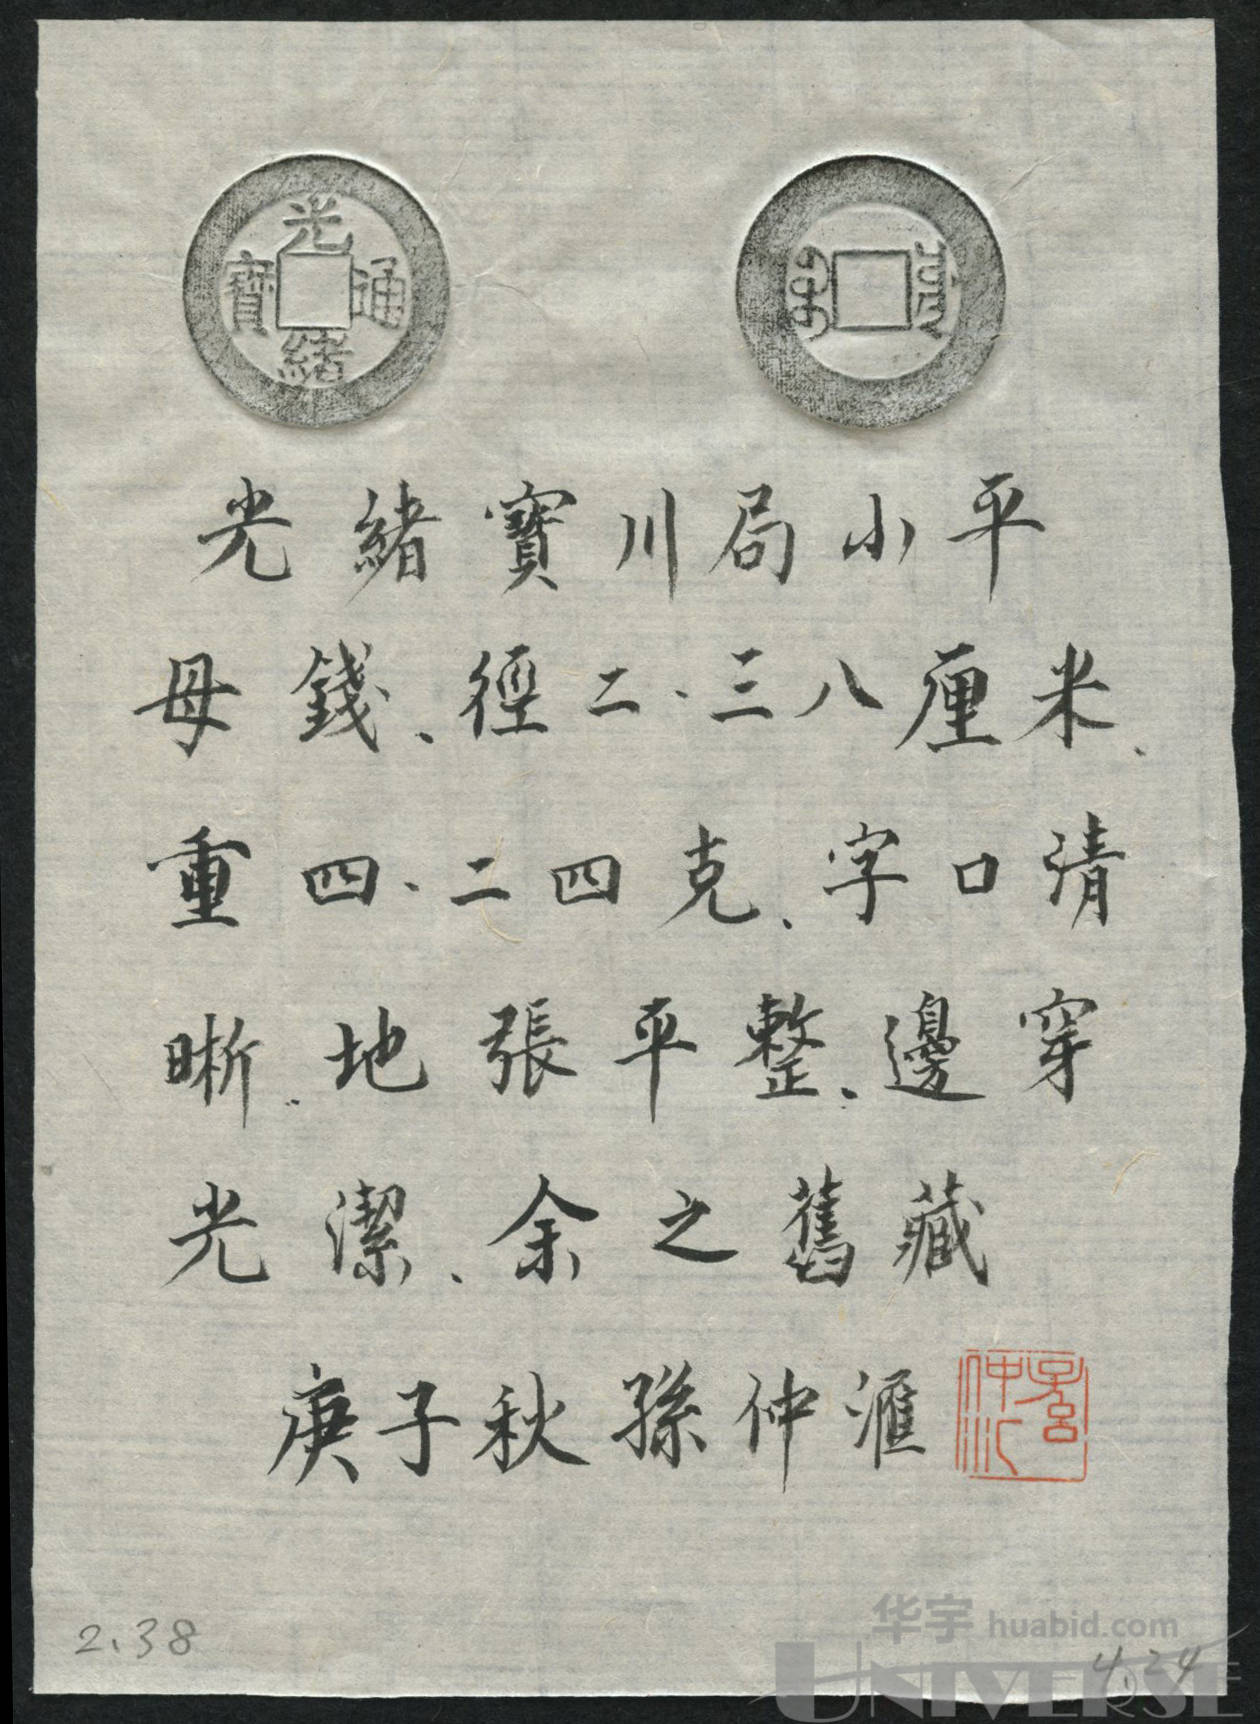 光緒通寶
光緒寶川局小平
母錢、徑二·三八厘米、
重四·二四克、字口清
晰、地張平整、邊穿
光潔、余之舊藏
庚子秋孫仲滙
2.38
4.24
华宇 huabid.com
UNIVERSE